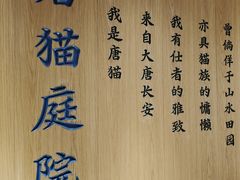 唐猫庭院
曾倘佯于山水田园
亦具猫族的慵懒
我有仕者的雅致
来自大唐长安
我是唐猫